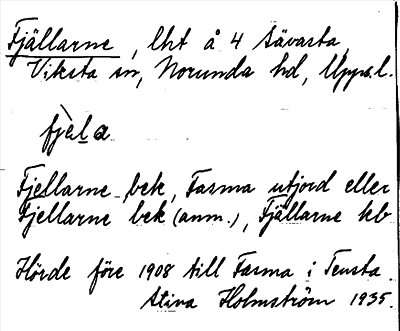 Fjällarne, lht å 4 Sävasta,
Viksta sn, Norunda hd, Upps. l.
fjèla
Fjellarne bek, Fasma utjord eller
Fjellarne bek (anm.), Fjällarne kb
Hörde före 1908 till Fasma i Tensta.
Stina Holmström 1935.